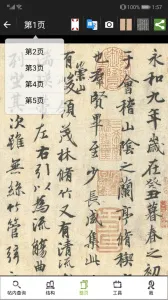 57%
1:57
第1页
第2页
第3页
第4页
第5页
永和九年歲在癸丑暮春之初
于會稽山陰之蘭亭脩稧
也羣賢畢至少長咸集此
有崇山峻領茂林脩竹又有清流
左右引以為流觴曲
雖無絲竹管弦
站内查询
结构
整页
工具
我